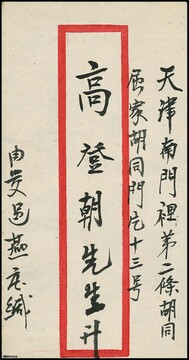 天津南門裡第二條胡同
屈家胡同門片十三号
高登朝先生升
由安邑燕庄緘